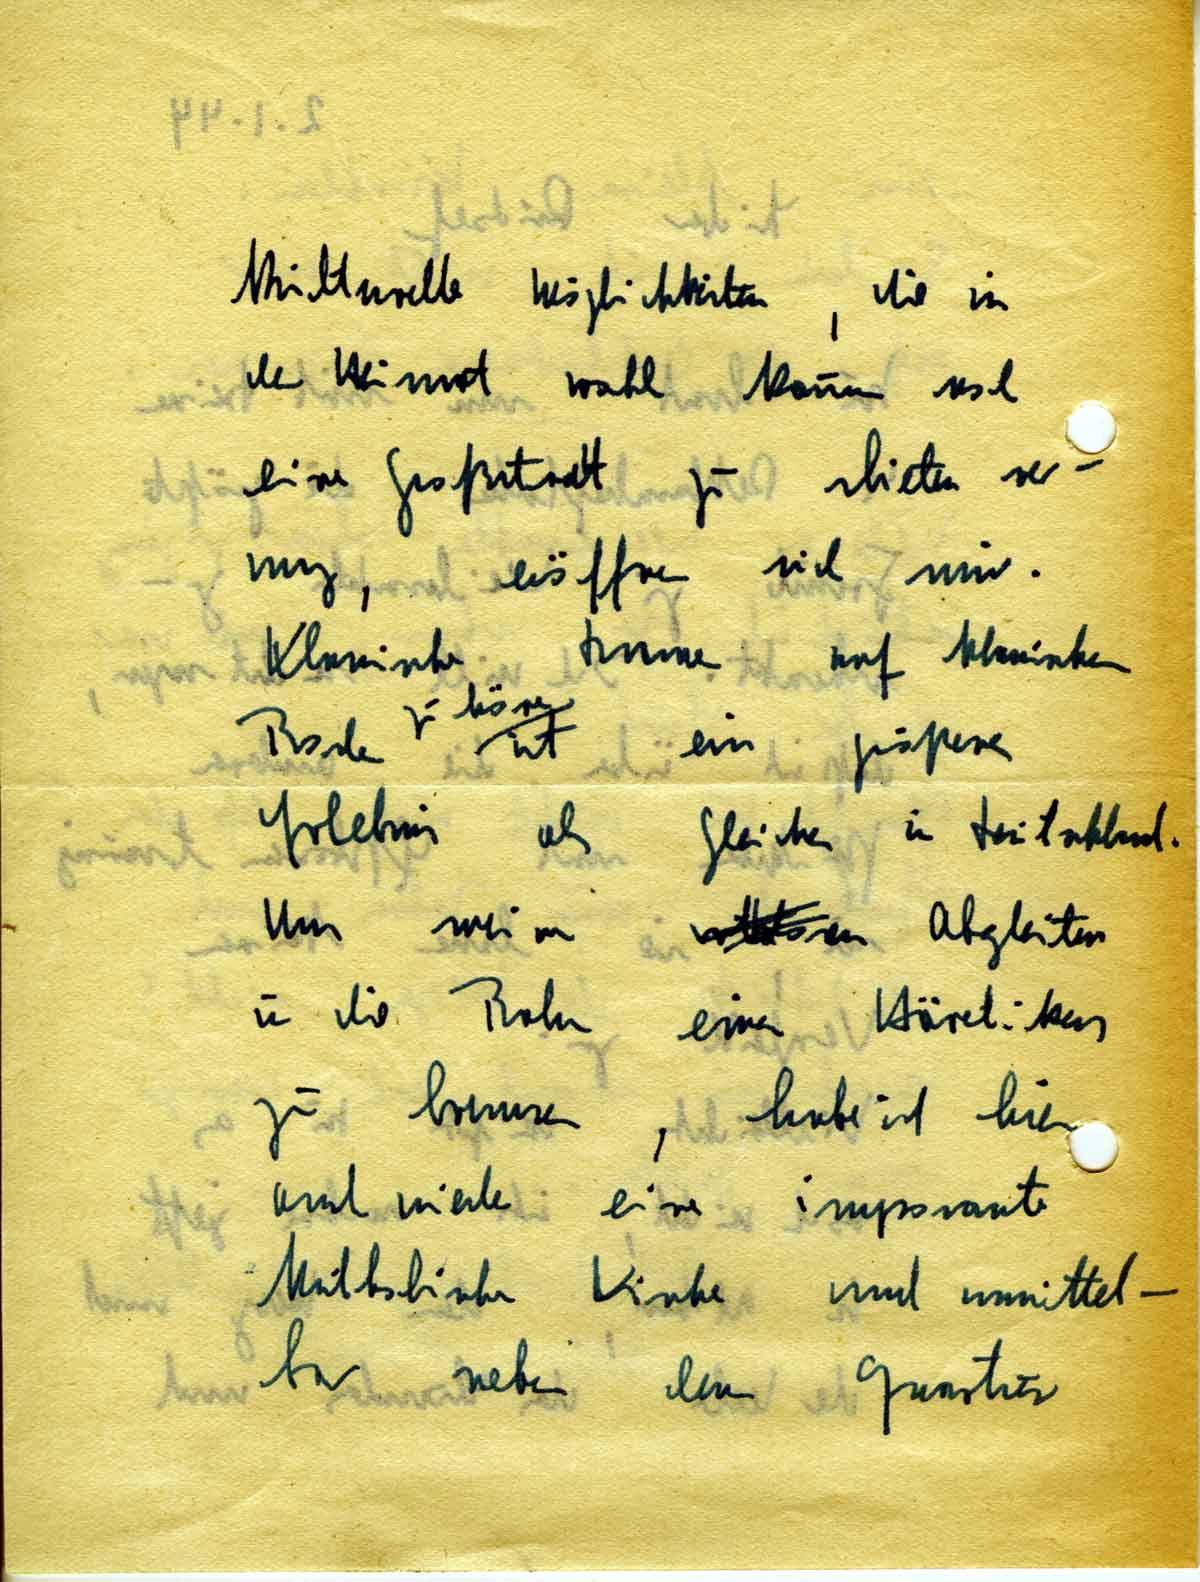 Kulturelle Möglichkeiten, die in
der Heimat wohl kaum noch
eine Großstadt zu bieten ver-
mag, eröffnen sich mir.
Klassische Dramen auf klassischem
Boden zu hören ist ein größeres
Erlebnis als gleiches in Deutschland.
Um mein Abgleiten
in die Rolle eines Häretikers
zu bremsen, habe ich hier
auch wieder eine imposante
katholische Kirche und unmittel-
bar neben dem Quartier